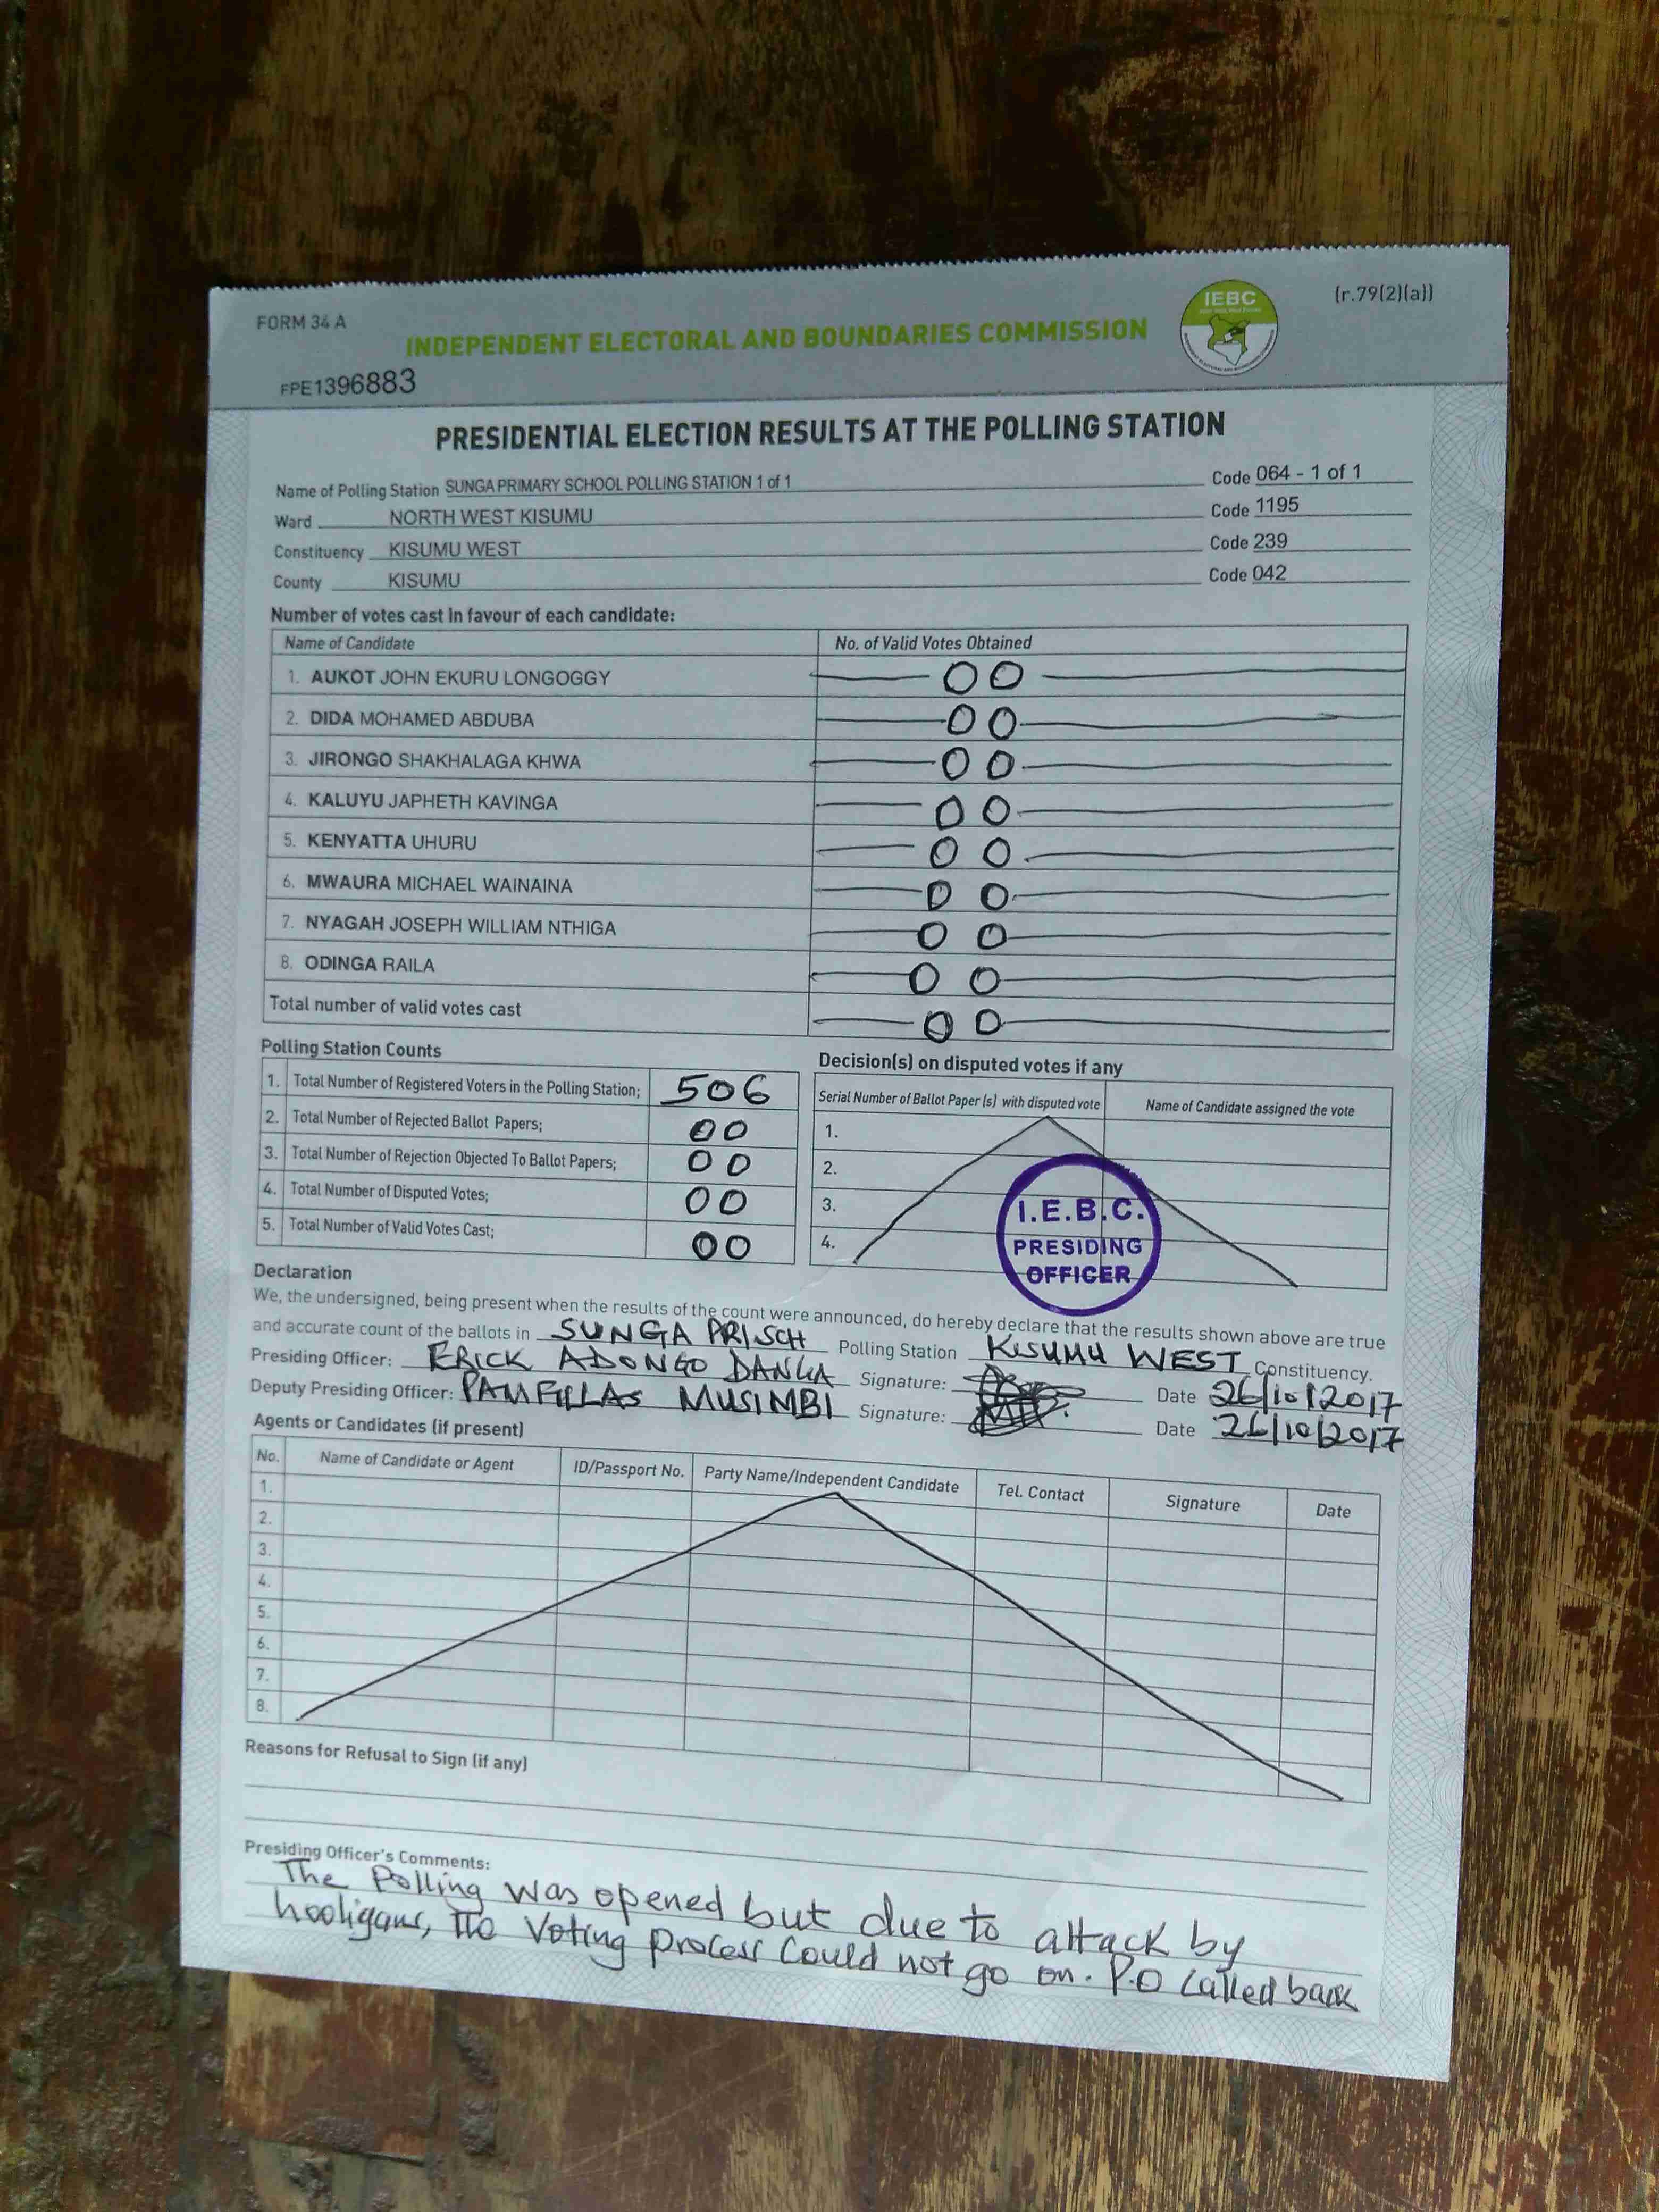 FORM 34 A
(r.79(2)(a))
IEBC
INDEPENDENT ELECTORAL AND BOUNDARIES COMMISSION
FPE1396883
PRESIDENTIAL ELECTION RESULTS AT THE POLLING STATION
Name of Polling Station SUNGA PRIMARY SCHOOL POLLING STATION 1 of 1 Code 064 - 1 of 1
Ward NORTH WEST KISUMU Code 1195
Constituency KISUMU WEST Code 239
County KISUMU Code 042
Number of votes cast in favour of each candidate:
Name of Candidate No. of Valid Votes Obtained
1. AUKOT JOHN EKURU LONGOGGY 00
2. DIDA MOHAMED ABDUBA 00
3. JIRONGO SHAKHALAGA KHWA 00
4. KALUYU JAPHETH KAVINGA 00
5. KENYATTA UHURU 00
6. MWAURA MICHAEL WAINAINA 00
7. NYAGAH JOSEPH WILLIAM NTHIGA 00
8. ODINGA RAILA 00
Total number of valid votes cast 00
Polling Station Counts
1. Total Number of Registered Voters in the Polling Station; 506
2. Total Number of Rejected Ballot Papers; 00
3. Total Number of Rejection Objected To Ballot Papers; 00
4. Total Number of Disputed Votes; 00
5. Total Number of Valid Votes Cast; 00
Decision(s) on disputed votes if any
Serial Number of Ballot Paper (s) with disputed vote Name of Candidate assigned the vote
1.
2.
3.
4.
I.E.B.C.
PRESIDING
OFFICER
Declaration
We, the undersigned, being present when the results of the count were announced, do hereby declare that the results shown above are true
and accurate count of the ballots in SUNGA PRI SCH Polling Station KISUMU WEST Constituency.
Presiding Officer: ERICK ADONGO Signature: Date 26/10/2017
Deputy Presiding Officer: PAMFILLAS MUSIMBI Signature: Date 26/10/2017
Agents or Candidates (if present)
No. Name of Candidate or Agent ID/Passport No. Party Name/Independent Candidate Tel. Contact Signature Date
1.
2.
3.
4.
5.
6.
7.
8.
Reasons for Refusal to Sign (if any)
Presiding Officer's Comments:
The Polling was opened but due to attack by
hooligans, the Voting process could not go on. P.O called back